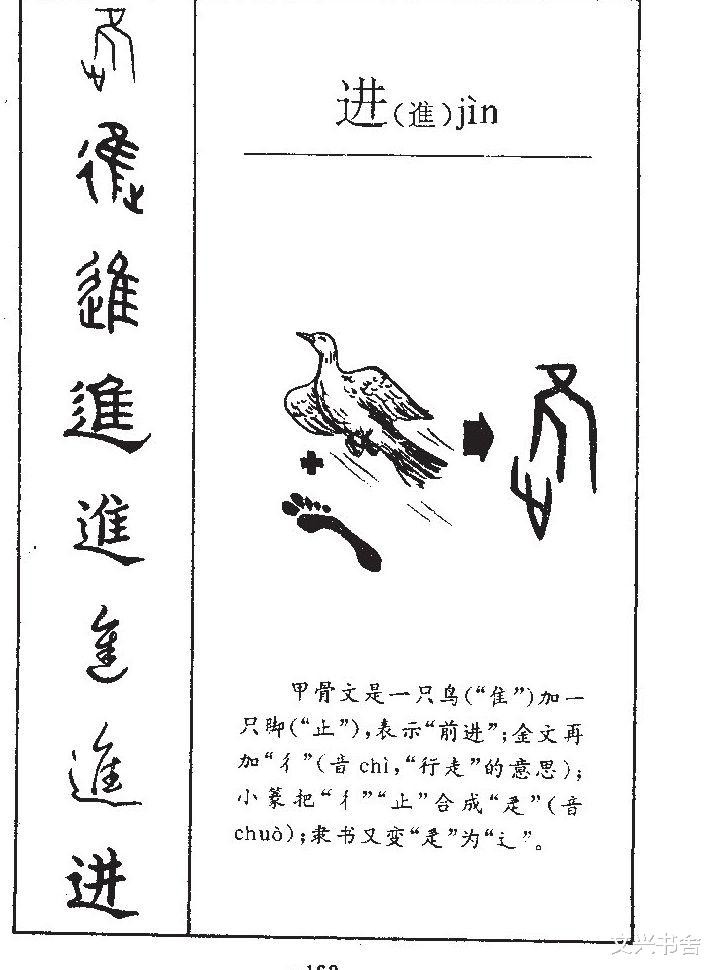 进(進)jìn
進
進
進
進
進
進
进
甲骨文是一只鸟(“隹”)加一
只脚(“止”),表示“前进”;金文再
加“彳”(音 chì,“行走”的意思);
小篆把“彳”“止”合成“辵”(音
chuò);隶书又变“辵”为“辶”。
文兴书舍